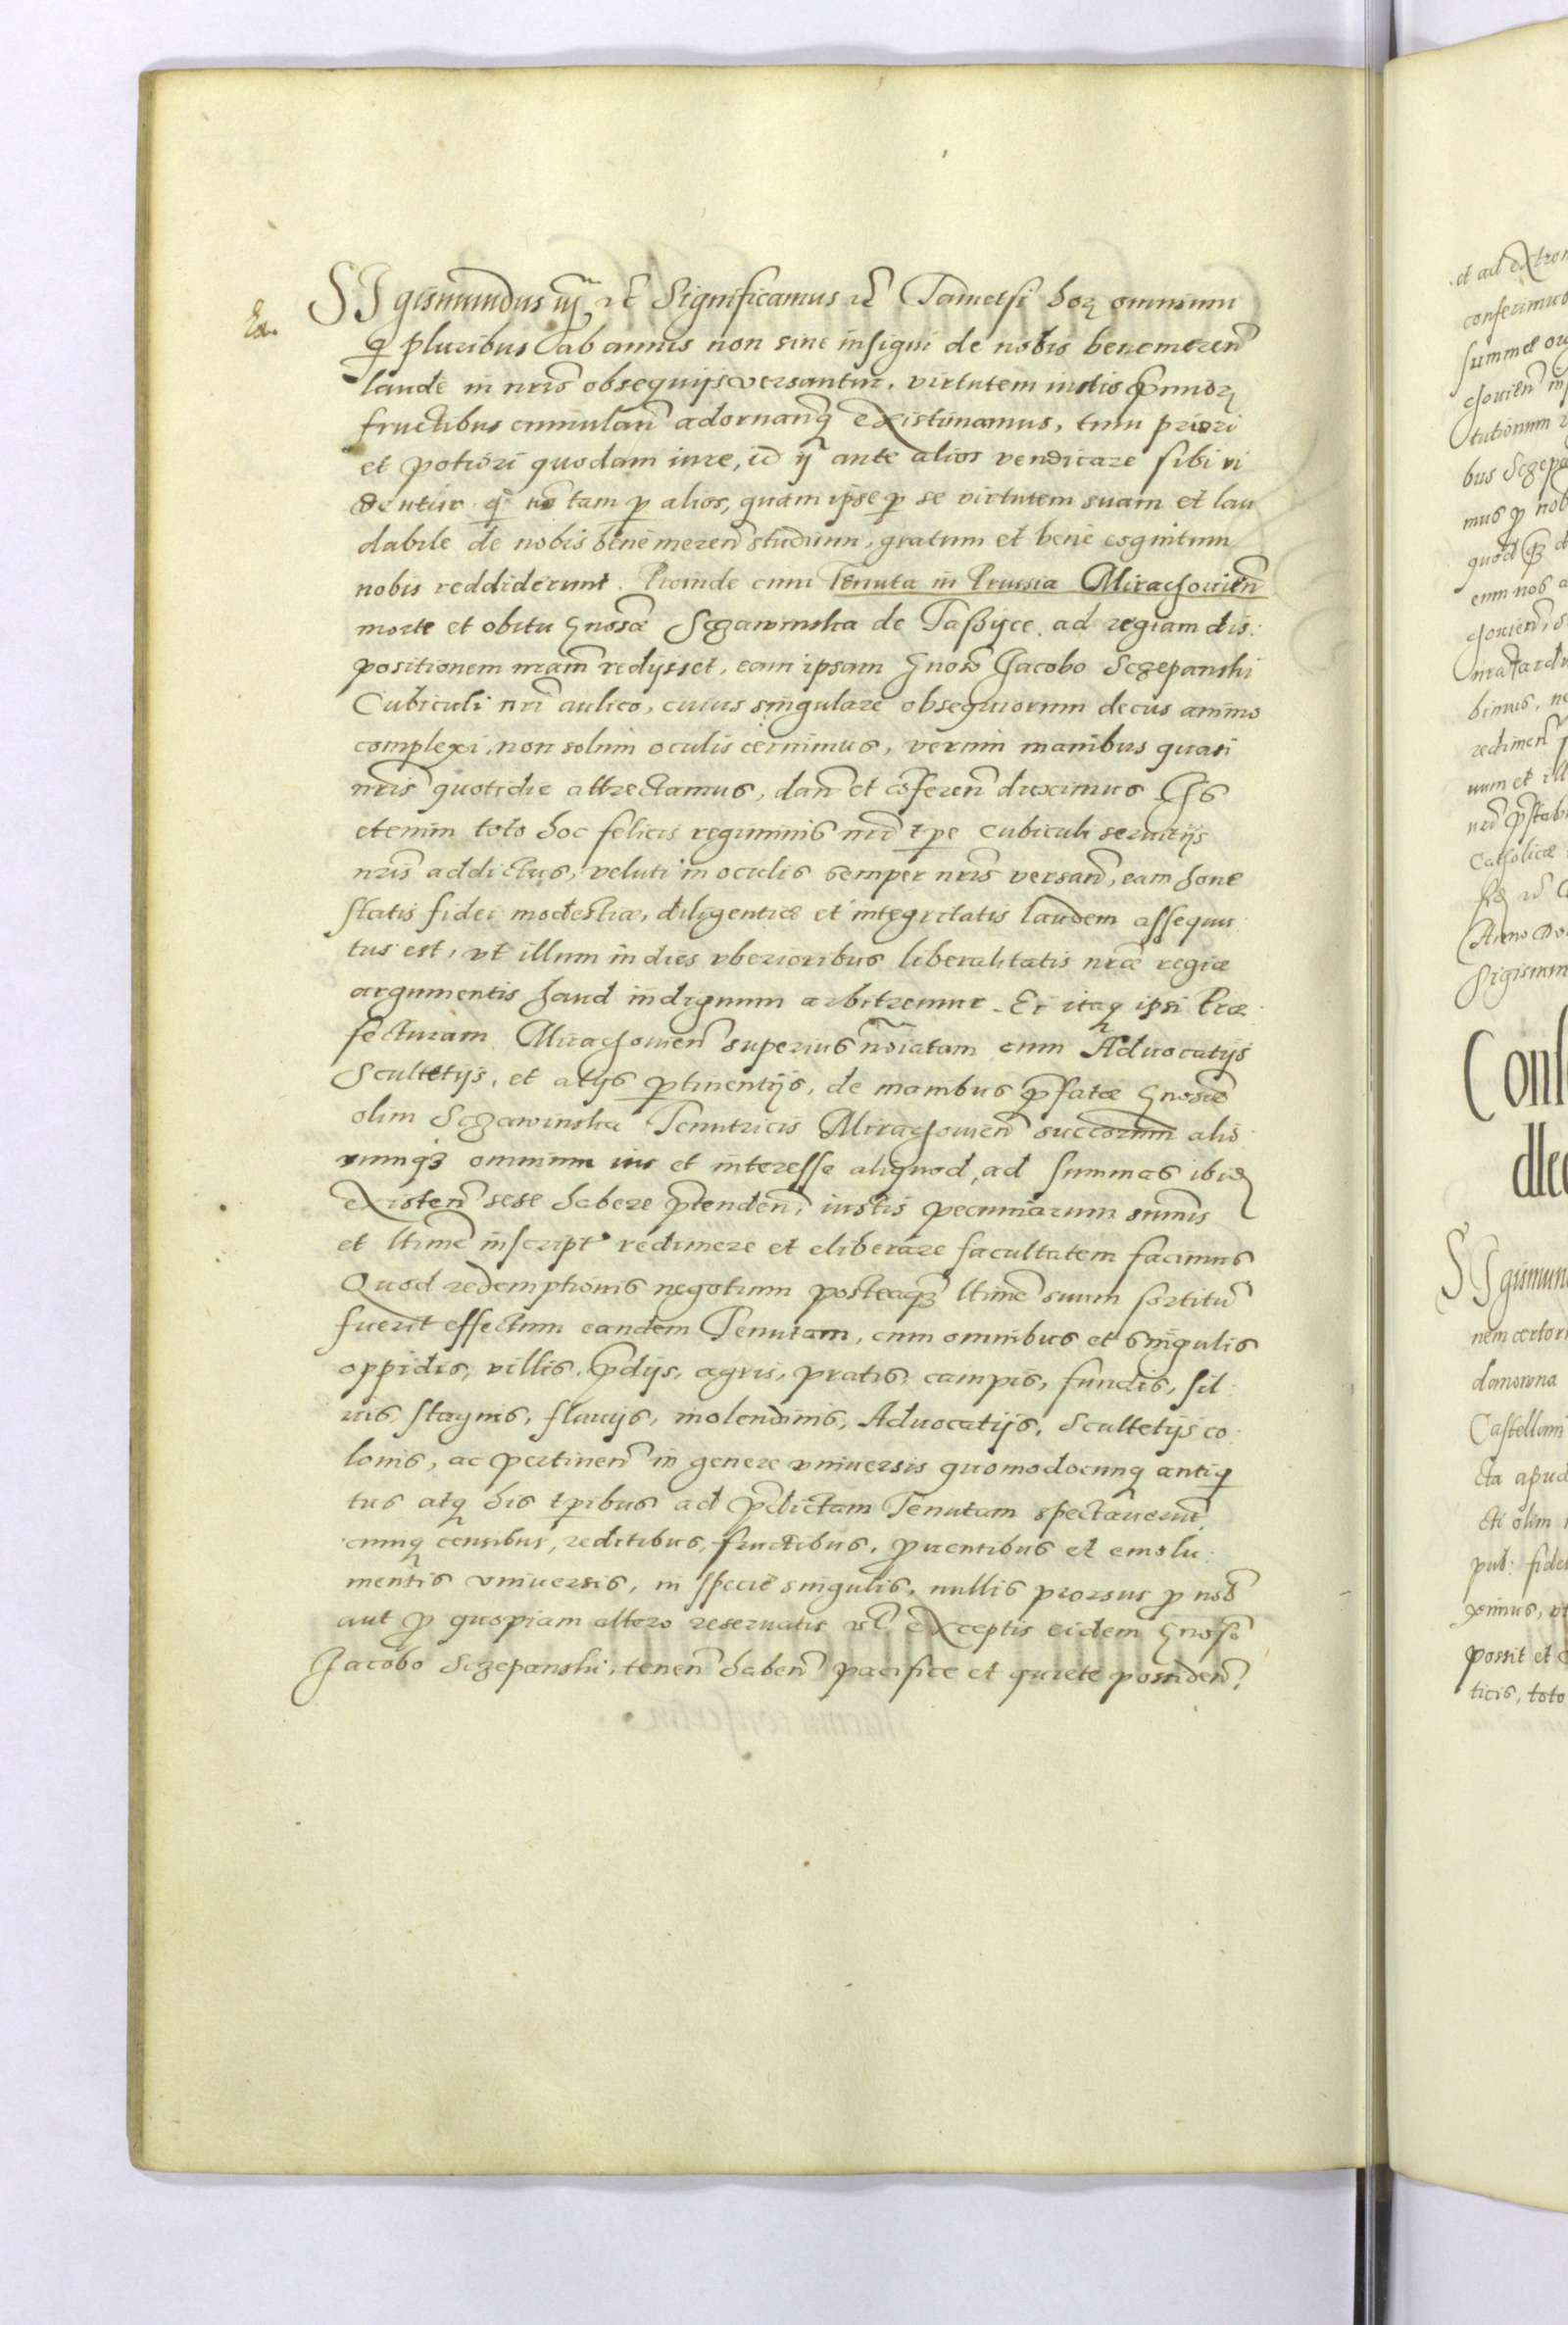 SIgismundus iij rc Significamus rc Tametsi hoꝝ omnium
Ex.
qi pluribus ab annis non sine insigni de nobis benemeren
laude in nris obsequijs versantur, virtutem iustis pmioꝝ
fructibus cumulan adornanq existimamus, tum priori
et potiori quodam iure, id ij ante alios vendicare sibi vi
dentur qi no tam p alios, quam ipse p se virtutem suam et lau
dabile de nobis benemeren studium, gratum et bene cognitum
nobis reddiderunt. Proinde cum Tenuta in Prussia Mirachovien
morte et obitu Gnosæ Sczawinska de Taßijce, ad regiam dis:
positionem nram redijsset, eam ipsam Gnoso Jacobo Sczepanski
Cubiculi nri aulico, cuius singulare obsequiorum decus animo
complexi, non solum oculis cernimus, verum manibus quasi
nris quotidie attrectamus, dan et coferen duximus Is
etenim toto hoc felicis regiminis nri tpe cubiculi servitijs
nris addictus, veluti in oculis semper nris versan, eam hone
statis fidei modestiæ, diligentiæ et integritatis laudem assequu
tus est, vt illum indies vberioribus liberalitatis nræ regiæ
argumentis haud indignum arbitremur. Ei itaq ipsi Præ
fecturam Mirachovien superius noiatam cum Advocatijs
Scultetijs, et alijs ptinentijs, de manibus pfatæ Gnosæ
olim Sczawinska Tenutricis Mirachovien succorum alio
rumqꝫ omnium ius et interesse aliquod, ad summas ibidꝫ
existen sese habere ptenden, iustis pecuniarum sumis
et ltime inscript redimere et eliberare facultatem facimus
Quod redemptionis negotium posteaqꝫ ltime suum sortitu
fuerit effectum eandem Tenutam, cum omnibus et singulis
oppidis, villis, pdijs, agris, pratis, campis, fundis, sil
vis, stagnis, fluvijs, molendinis, Advocatijs, Scultetijs co
lonis, ac pertinen in genere vniversis quomodocunq antiq
tus atq his tpibus ad pdictam Tenutam spectaverut
cumq censibus, reditibus, fructibus, pventibus et emolu
mentis vniversis, in specie singulis, nullis prorsus p nos
aut p quopiam altero reservatis vl exceptis eidem Gnoso
Jacobo Sczepanski, tenen haben pacifice et quiete possiden
et ad extrem
conferimus
summæ
chovien
tutionum
bus Sczepa
mus p nob
quod
eum nos a
chovien,
bimus, ne
redimen
num et ill
nri pstab
Catholicæ
Anno Do
Sigismun
Cons
SIgismun
nem certor
damovna
Castellani
cta apud
cti olim
pub: fide
ximus, vt
possit et
ticis, toto